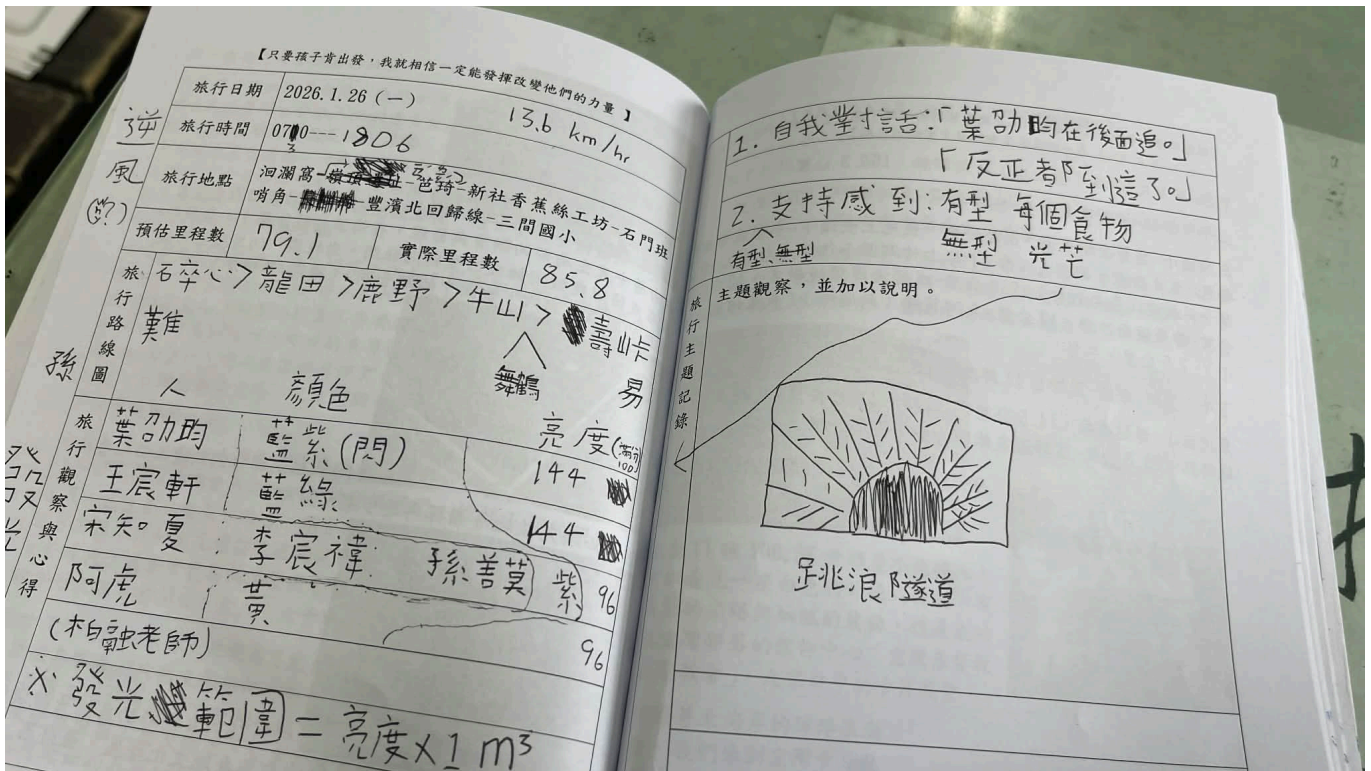 【只要孩子肯出發,我就相信一定能發揮改變他們的力量 】
旅行日期 2026.1.26(一) 13.6 km/hr
旅行時間 0730---1806
逆風
旅行地點 洄瀾窩-芭崎-新社香蕉絲工坊-石門班
哨角-豐濱北回歸線-三間國小
預估里程數 79.1 實際里程數 85.8
旅行路線圖
石碎心>龍田>鹿野>牛山>壽峠
難 舞鶴 易
人 顏色 亮度(滿分100)
旅行觀察與心得
孫
發光
葉劭昀 藍紫(閃) 144
王宸軒 藍綠 144
宋知夏: 李宸禕: 孫善蓂 紫 96
阿虎 黃 96
(柏融老師)
※發光範圍=亮度×1 m³
1. 自我對話:「葉劭昀在後面追。」
「反正都到這了。」
2. 支持感到:有型 每個食物
有型、無型 無型 光芒
旅行主題記錄
主題觀察,並加以說明。
跳浪隧道